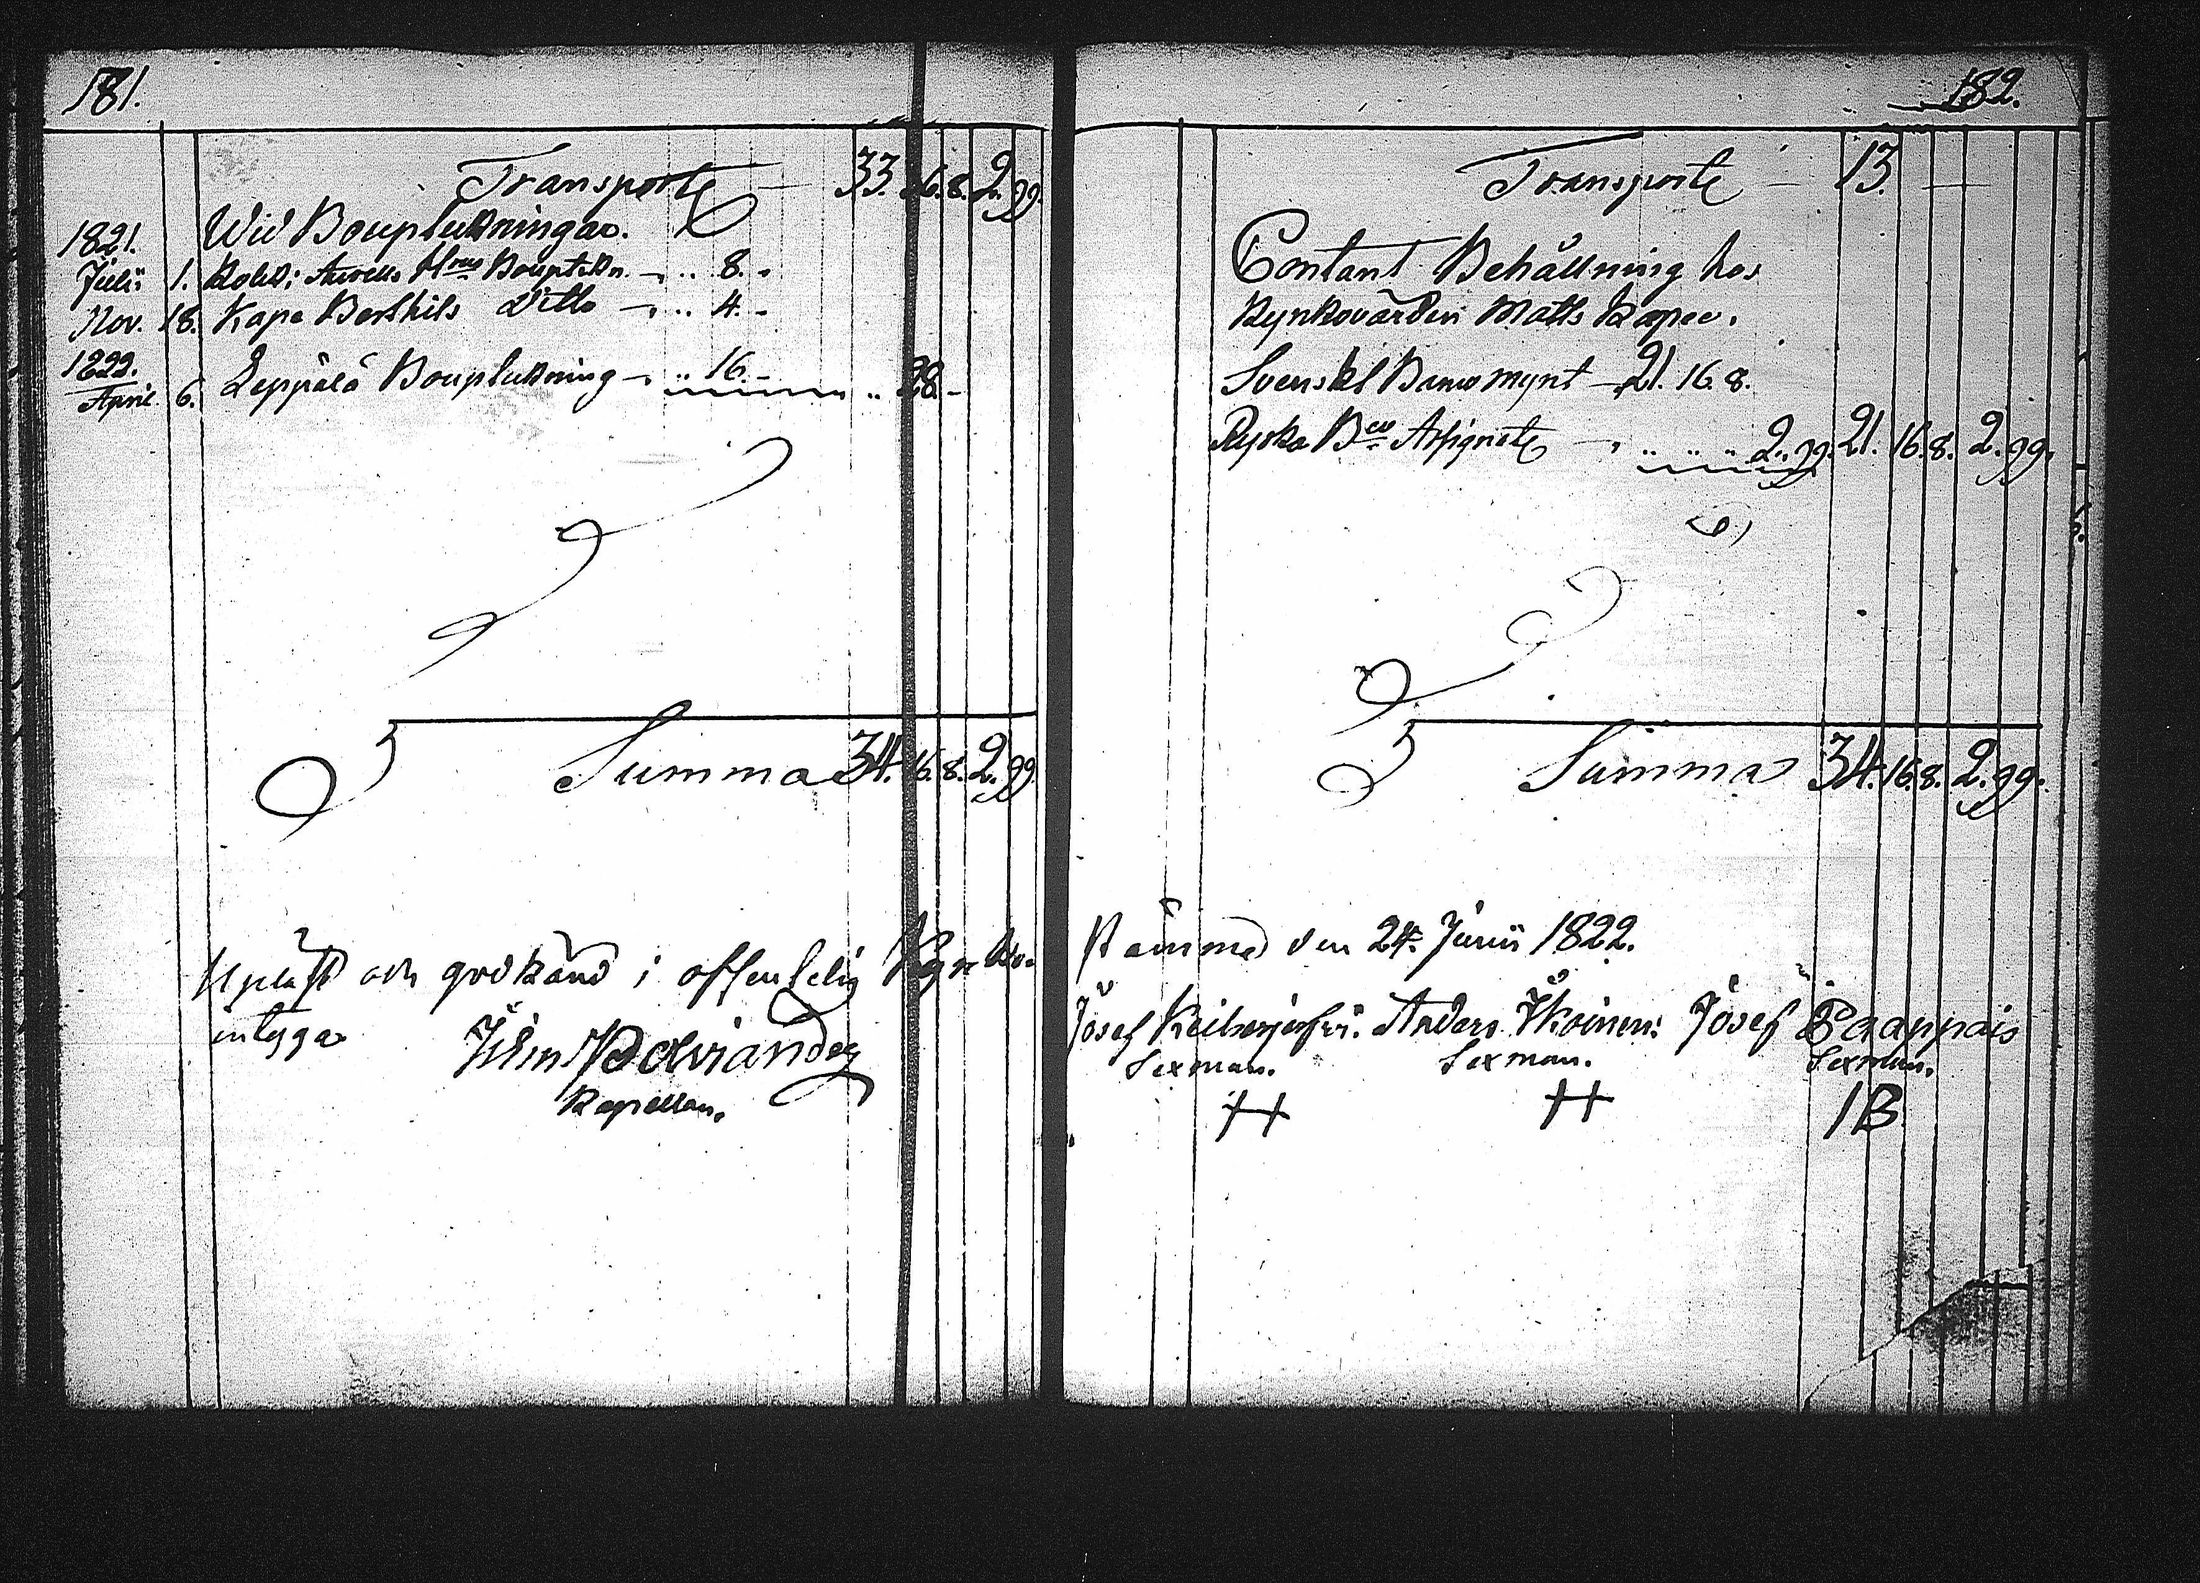 181.
Transporte — 33. 16. 8. 2. 99.
1821. Wid Bouplukningar.
Julii 1. Bouptekn. — „ 8. „
Nov. 18. Kapa Berthils Ditto — „ 4. -
1822.
April. 6. Leppälä Bouplukning — „ 16. - „ 28. -
Summa 34. 16. 8. 2. 99.
Upläst och godkänd i offentelig Kyrko-
intygga
Kapellan.
182.
Transporte — 13. —
Contant Behållning hos
Kyrkovärden Matts Kapee.
Svenskt Banco mynt — 21. 16. 8.
Ryska Bco Assignate — „ „ „ „ 2. 99. 21. 16. 8. 2. 99.
Summa 34. 16. 8. 2. 99.
stämma den 24. Junii 1822.
Josef Anders Josef
Sexman. Sexman. Sexman.
IB